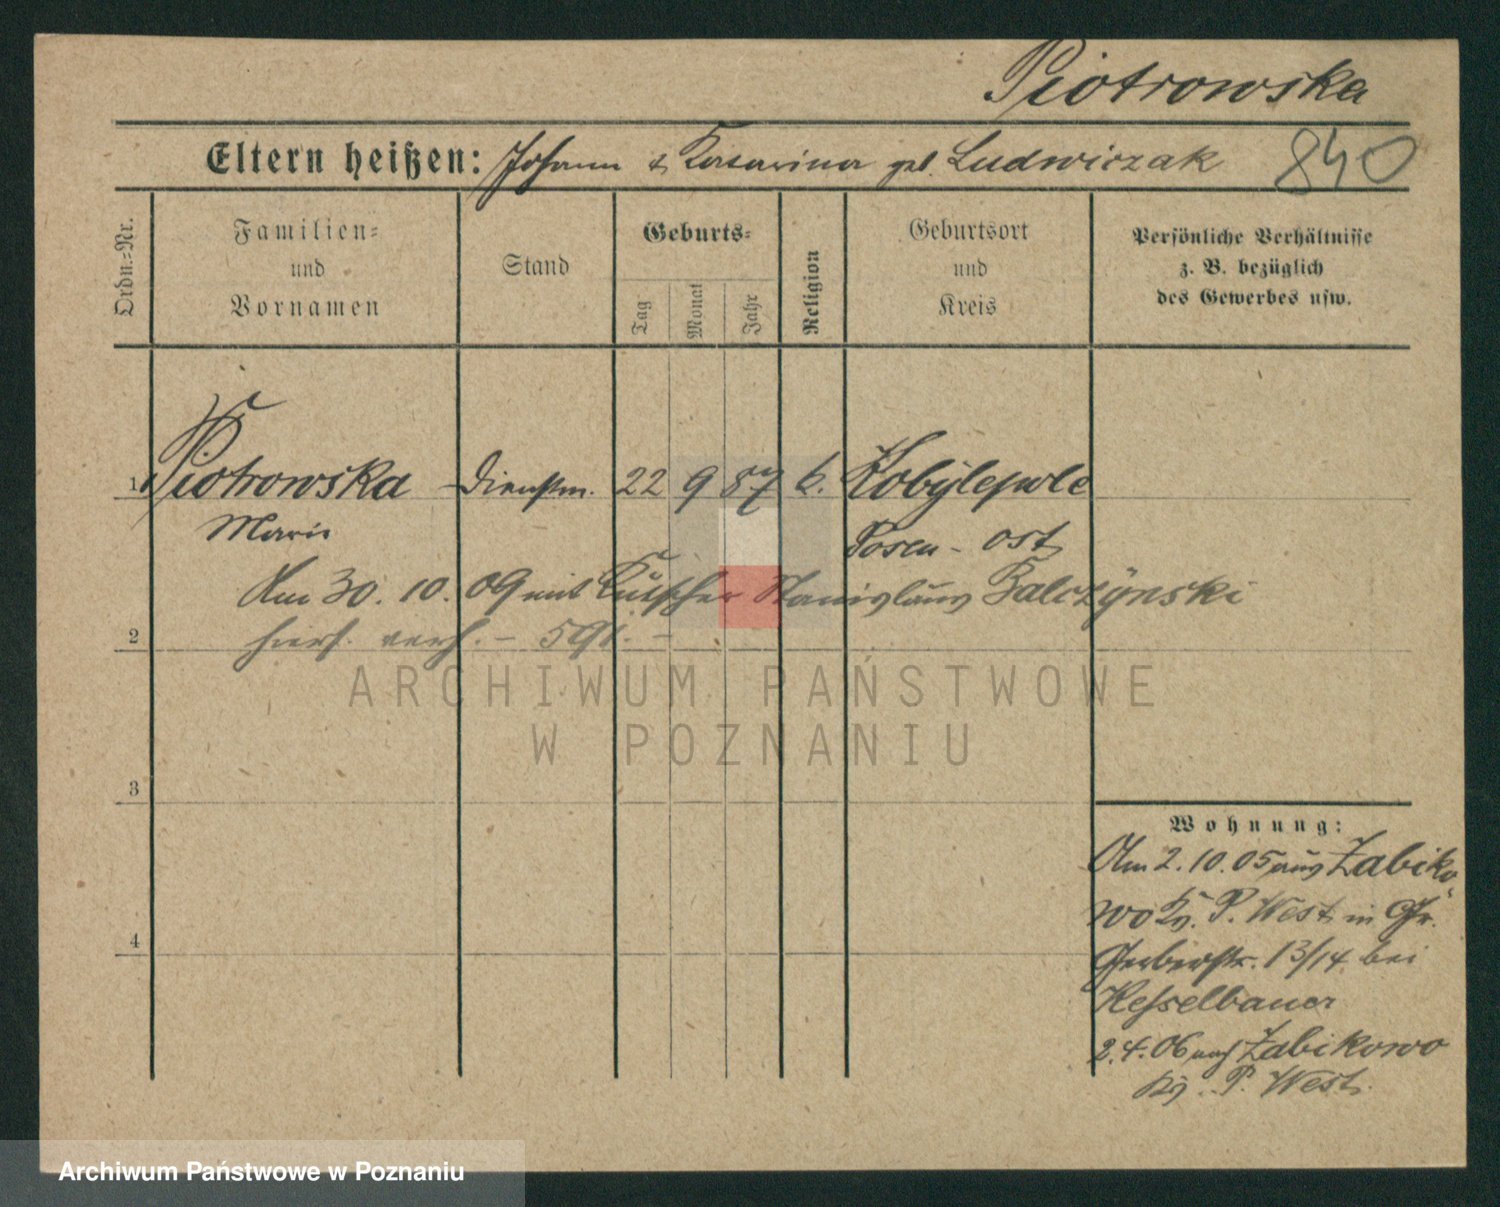 Piotrowska
Eltern heißen: Johann & Katarina geb. Ludwiczak 840
Ordn.-Nr.
Familien-
und
Vornamen
Stand
Geburts-
Tag
Monat
Jahr
Religion
Geburtsort
und
Kreis
Persönliche Verhältnisse
z. B. bezüglich
des Gewerbes usw.
1 Piotrowska Dienstm. 22 9 87 k. Kobylepole
Marie Posen - Ost
Am 30. 10. 09 mit Kutscher Stanislaus Balczynski
2 hiers. verh. - 591. -
ARCHIWUM PAŃSTWOWE
W POZNANIU
3
Wohnung:
Am 2. 10. 05 aus Zabiko
wo Kr. P. West in Gr.
4
Gerberstr. 13/14 bei
Kesselbauer
2. 4. 06 nach Zabikowo
Kr. P. West.
Archiwum Państwowe w Poznaniu